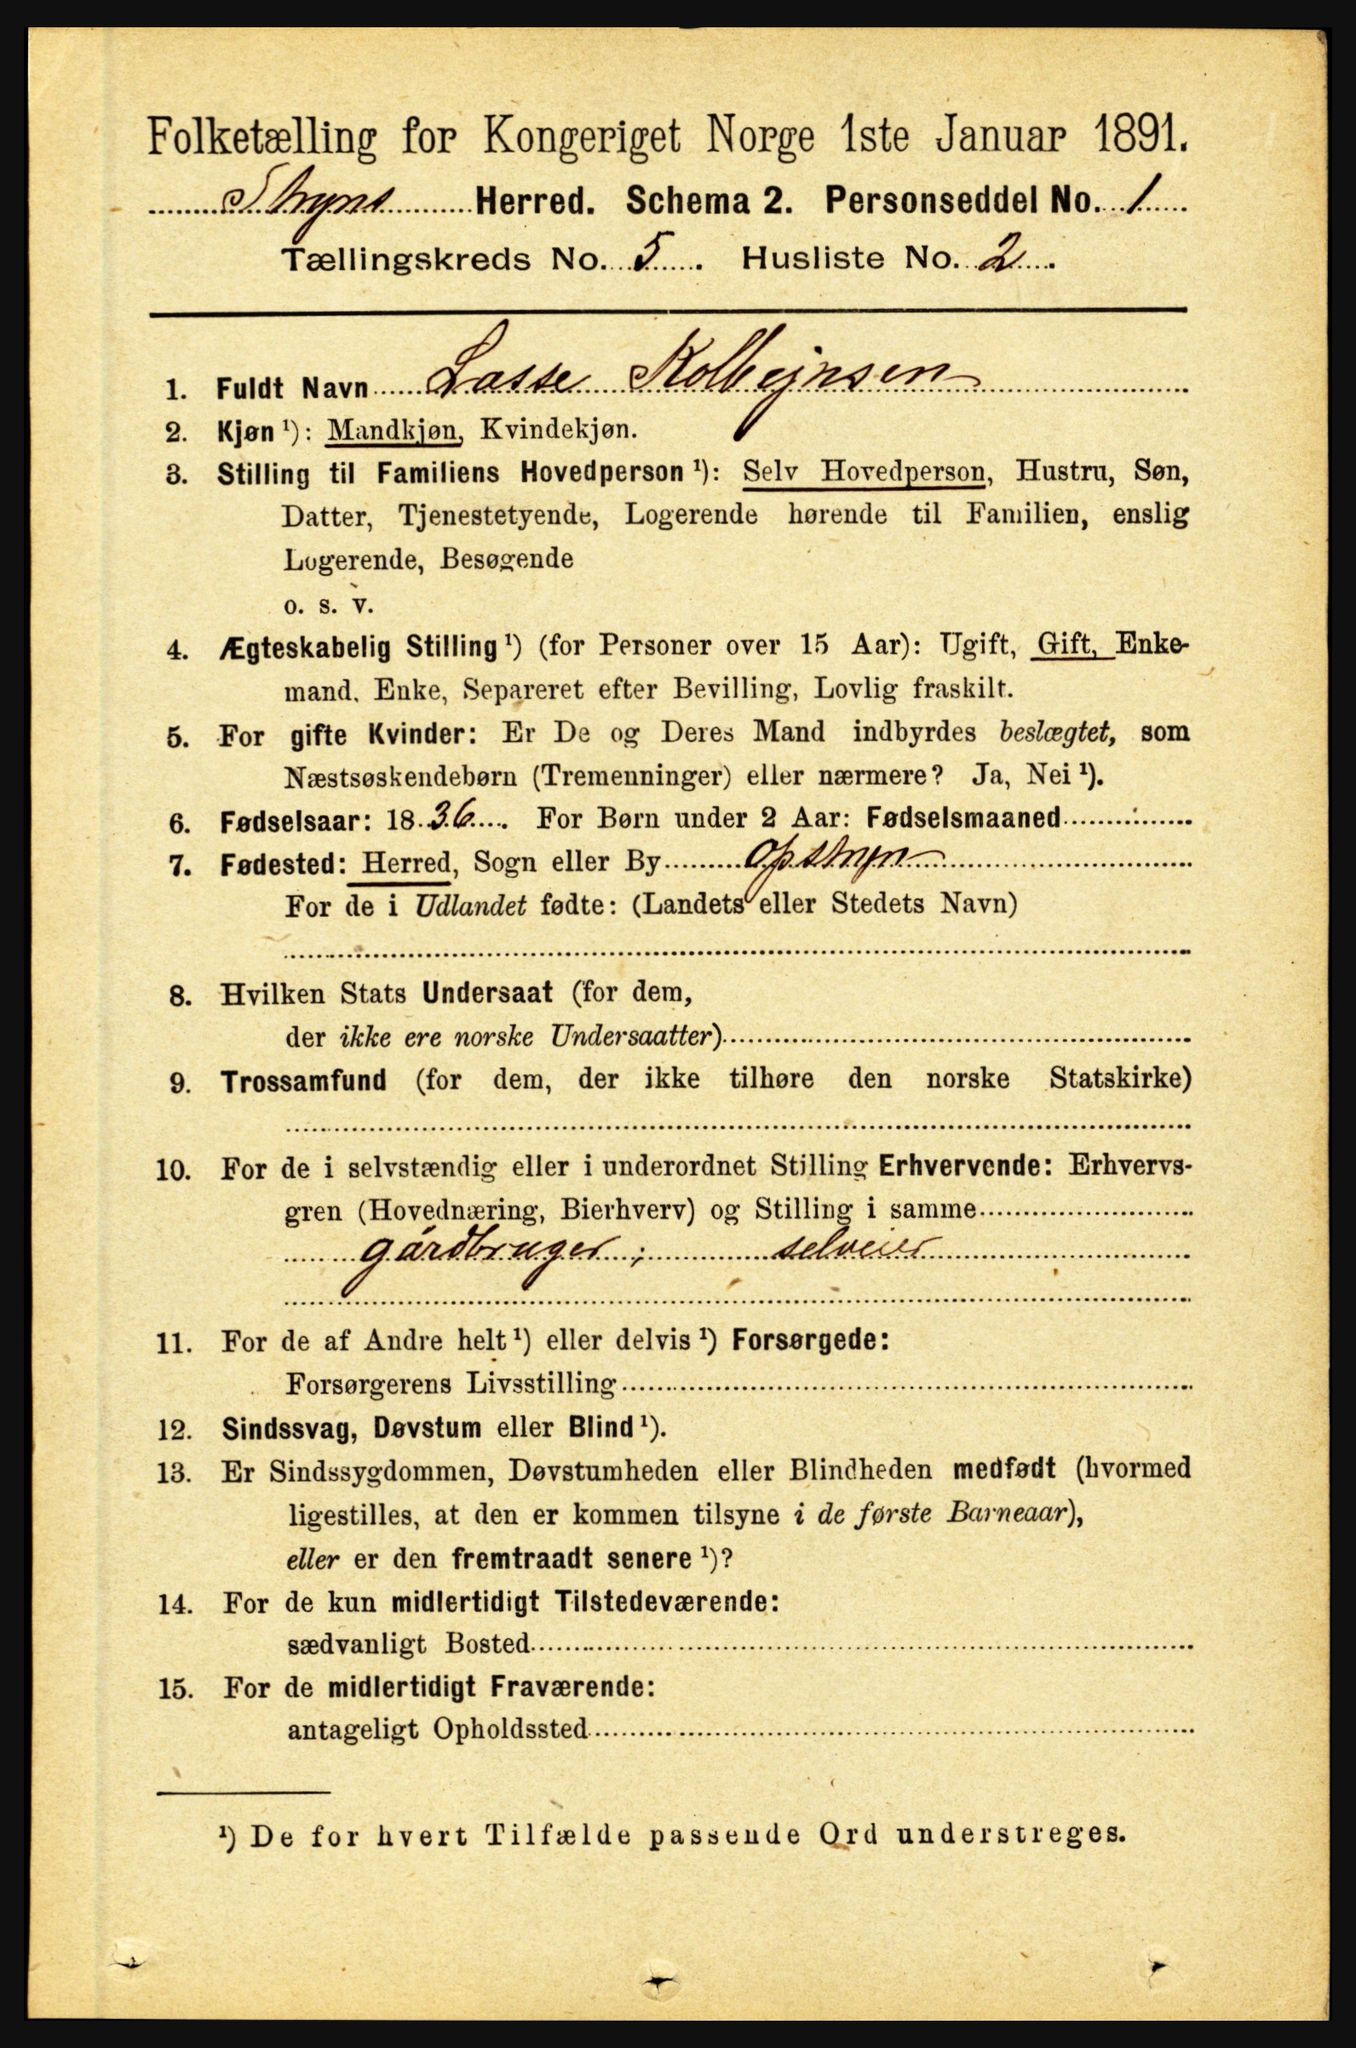 Folketælling for Kongeriget Norge 1ste Januar 1891.
Stryns Herred. Schema 2. Personseddel No. 1
Tællingskreds No. 5. Husliste No. 2.
1. Fuldt Navn Lasse Kolbejnsen
2. Kjøn ¹): Mandkjøn, Kvindekjøn.
3. Stilling til Familiens Hovedperson ¹): Selv Hovedperson, Hustru, Søn,
Datter, Tjenestetyende, Logerende hørende til Familien, enslig
Logerende, Besøgende
o. s. v.
4. Ægteskabelig Stilling ¹) (for Personer over 15 Aar): Ugift, Gift, Enke-
mand, Enke, Separeret efter Bevilling, Lovlig fraskilt.
5. For gifte Kvinder: Er De og Deres Mand indbyrdes beslægtet, som
Næstsøskendebørn (Tremenninger) eller nærmere? Ja, Nei ¹).
6. Fødselsaar: 1836. For Børn under 2 Aar: Fødselsmaaned
7. Fødested: Herred, Sogn eller By Opstryn
For de i Udlandet fødte: (Landets eller Stedets Navn)
8. Hvilken Stats Undersaat (for dem,
der ikke ere norske Undersaatter)
9. Trossamfund (for dem, der ikke tilhøre den norske Statskirke)
10. For de i selvstændig eller i underordnet Stilling Erhvervende: Erhvervs-
gren (Hovednæring, Bierhverv) og Stilling i samme
gårdbruger; selveier
11. For de af Andre helt ¹) eller delvis ¹) Forsørgede:
Forsørgerens Livsstilling
12. Sindssvag, Døvstum eller Blind ¹).
13. Er Sindssygdommen, Døvstumheden eller Blindheden medfødt (hvormed
ligestilles, at den er kommen tilsyne i de første Barneaar),
eller er den fremtraadt senere ¹)?
14. For de kun midlertidigt Tilstedeværende:
sædvanligt Bosted
15. For de midlertidigt Fraværende:
antageligt Opholdssted
¹) De for hvert Tilfælde passende Ord understreges.